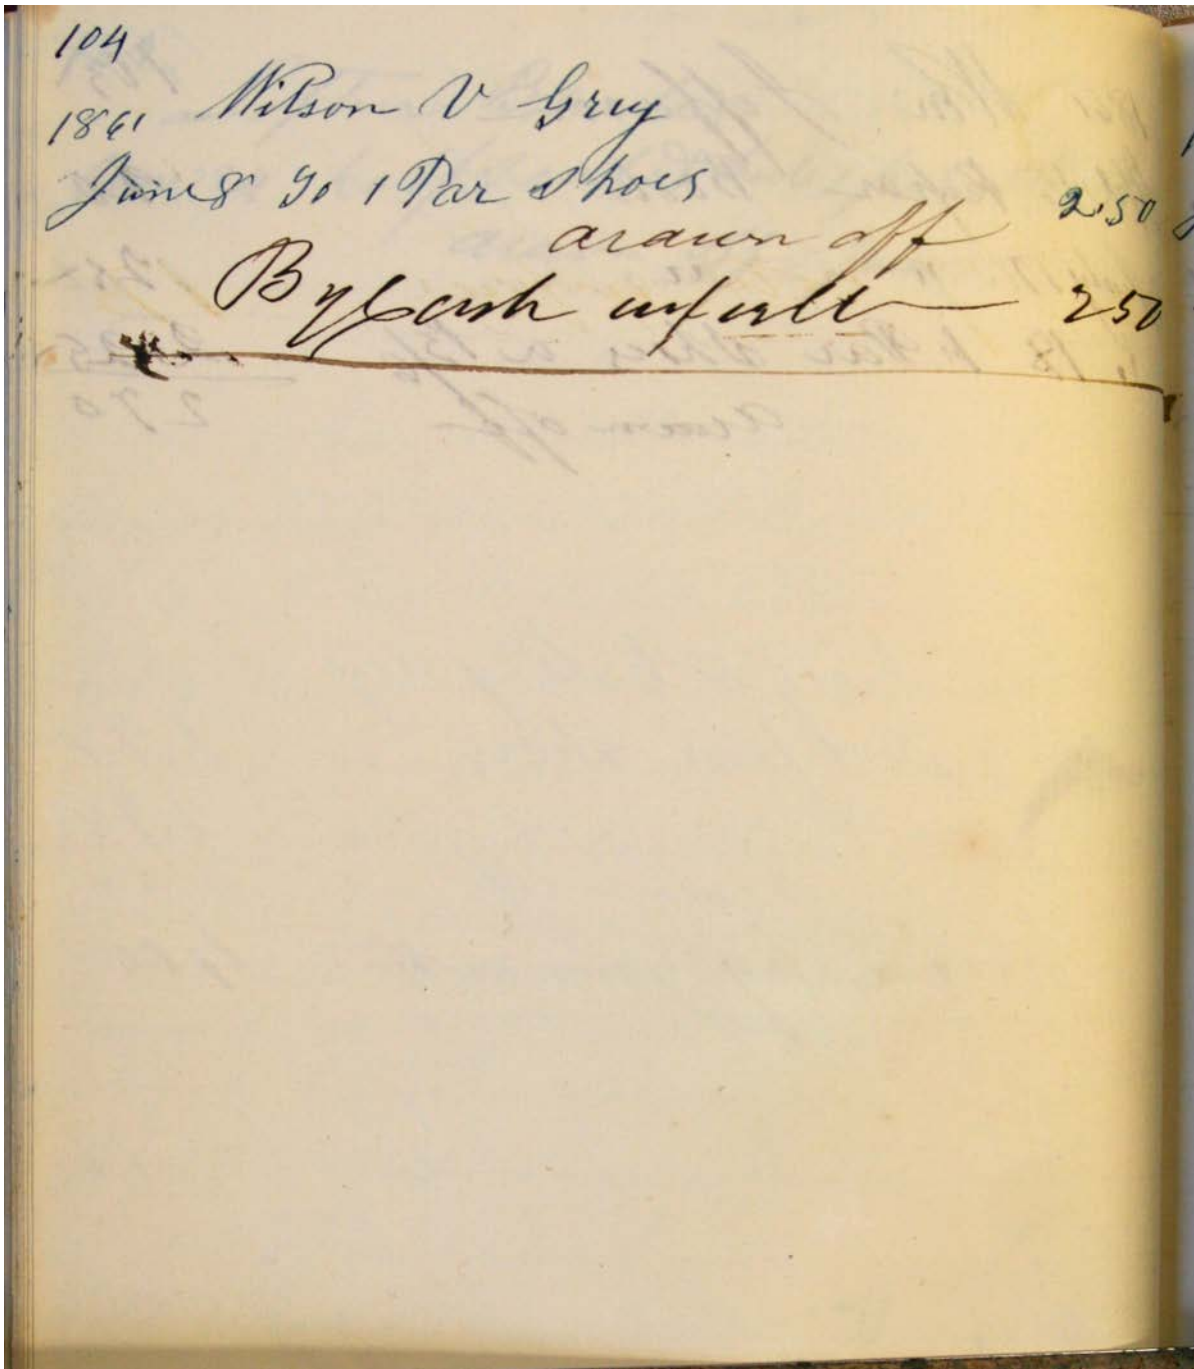 104
Wilson V Grey
1861
June 8 To 1 Par Shoes 2.50
drawn off
By Cash in full 250